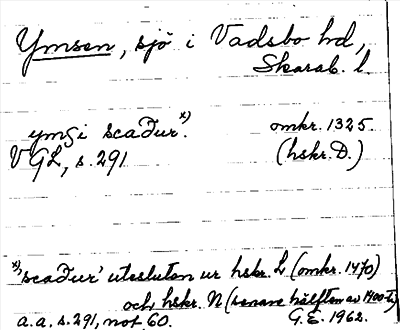 Ymsen, sjö i Vadsbo hd,
Skarab. l.
ymsi scaður.x) omkr. 1325.
VGL, s. 291 (hskr. D.)
x) 'scaður' utesluten ur hskr. L (omkr. 1470)
och hskr. N (senare hälften av 1400-t.)
a.a. s. 291, not 60. G.E. 1962.